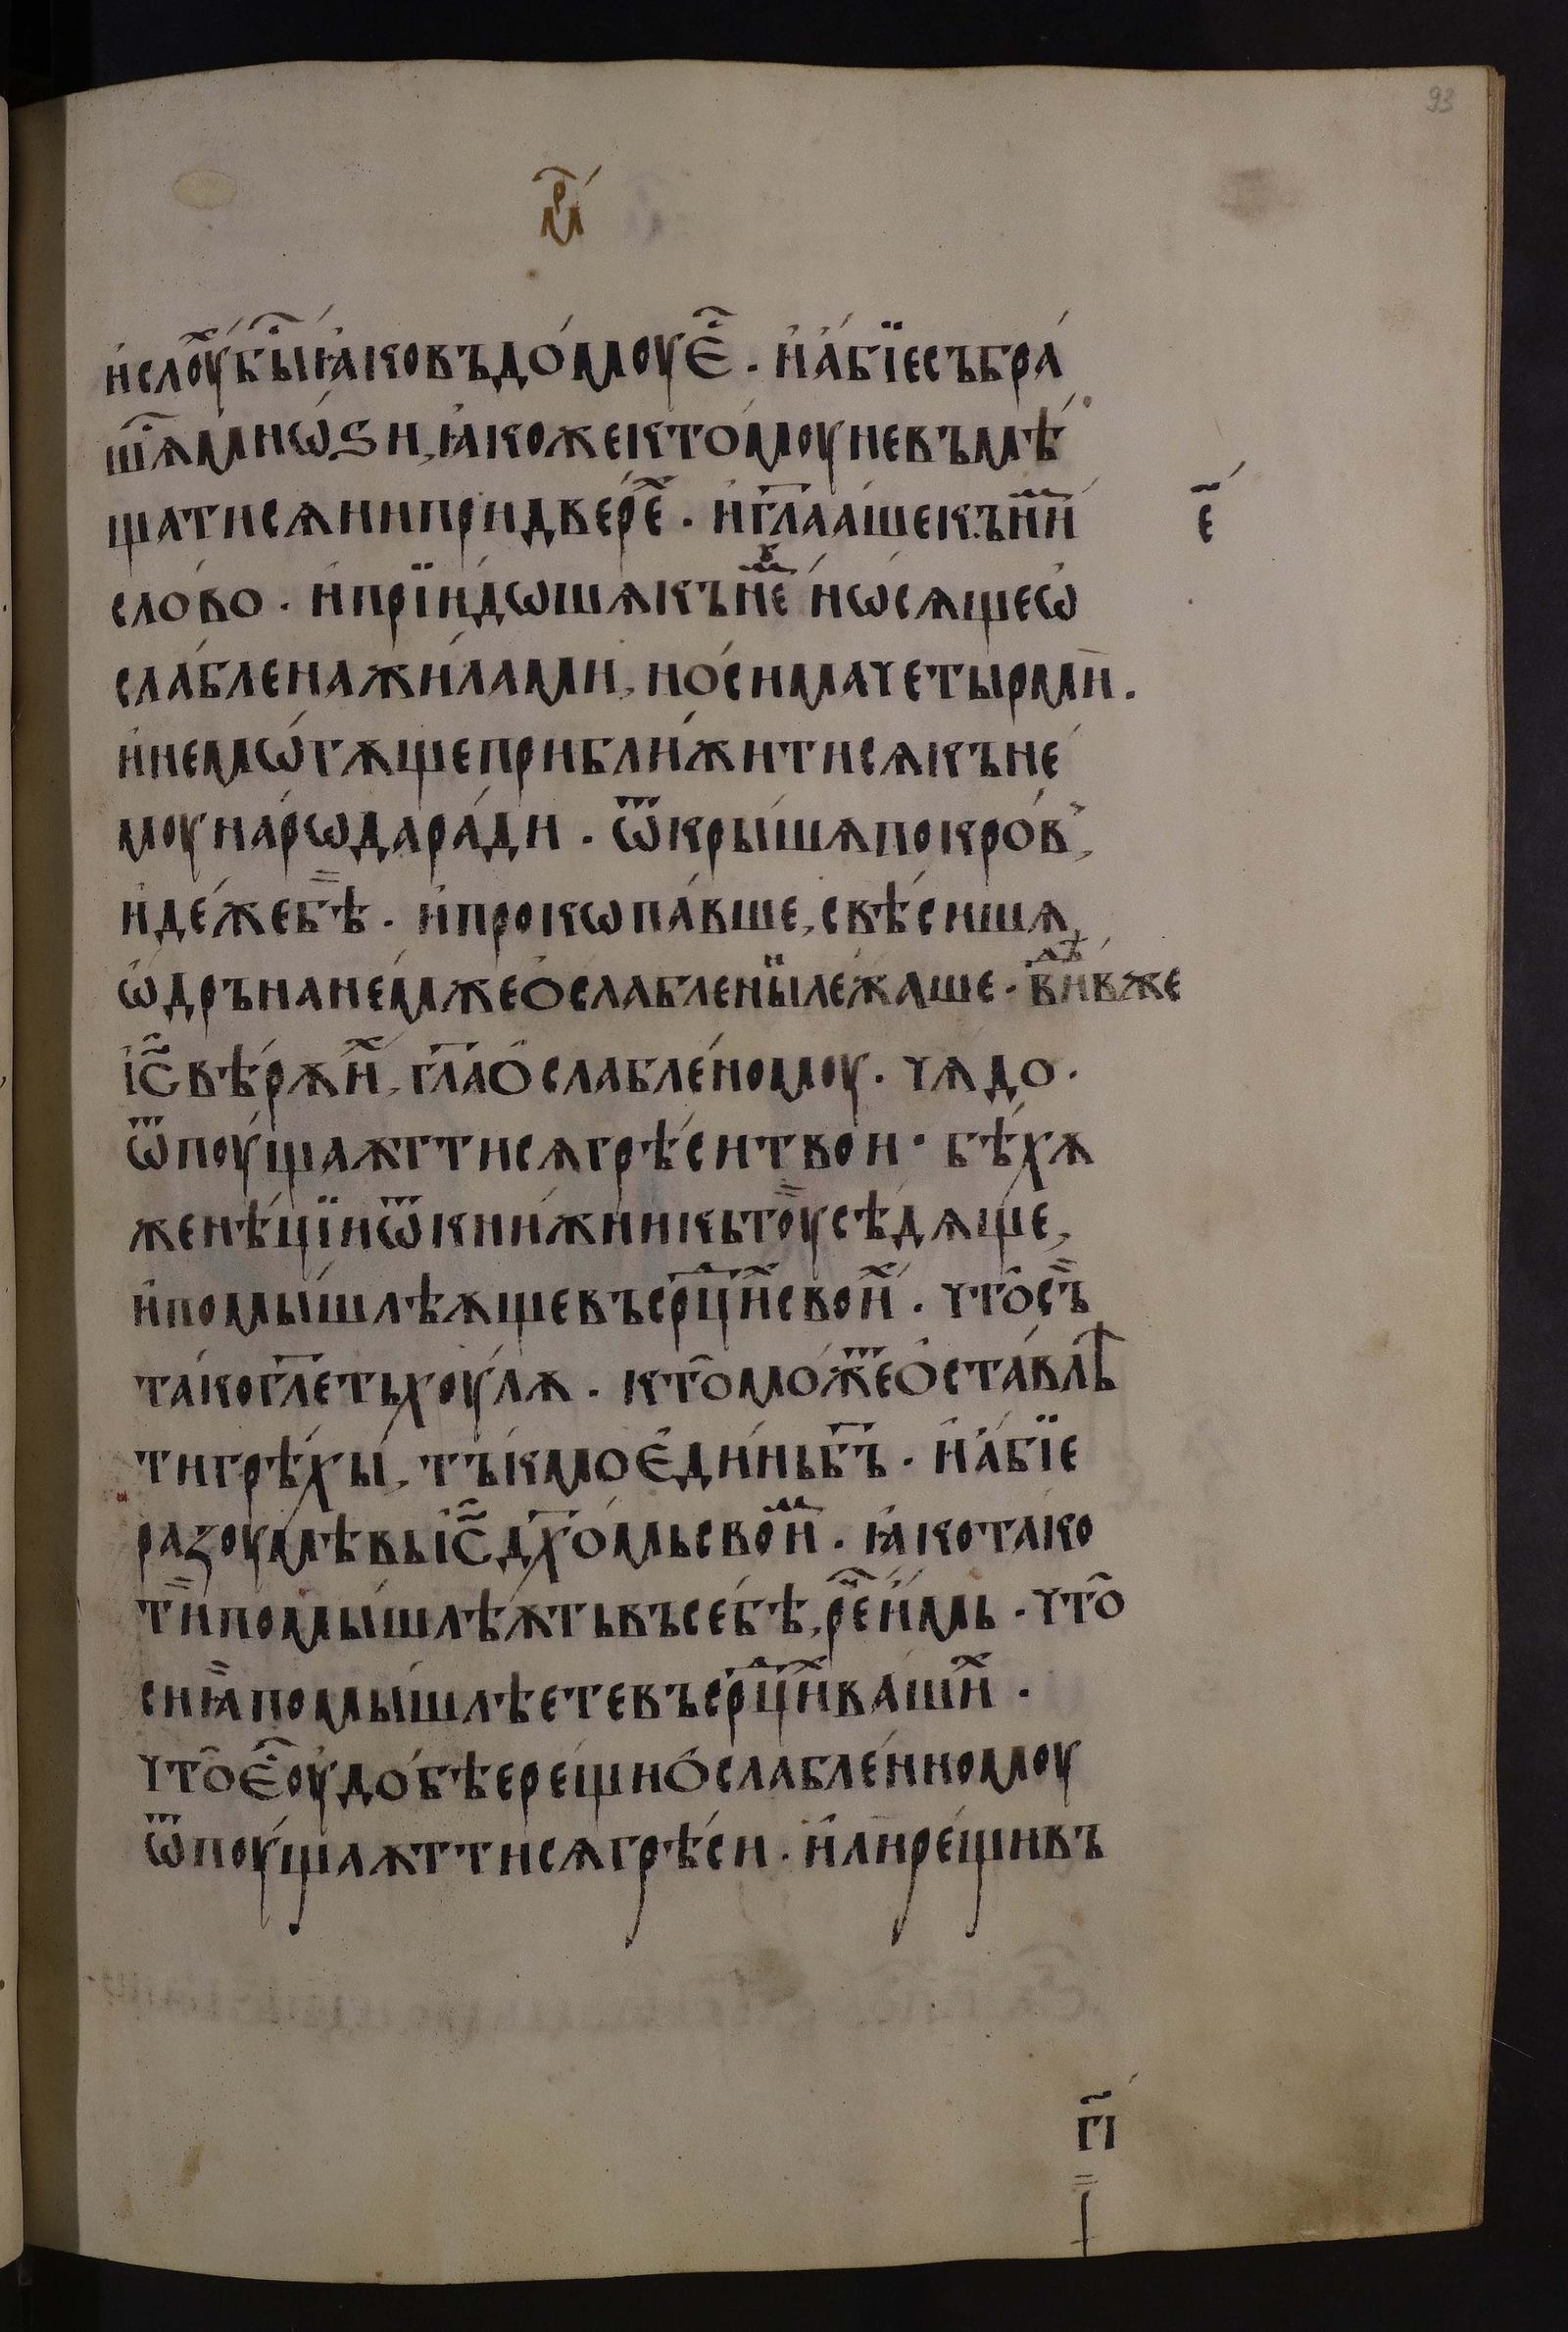 93
мр҃
и҆слоу́ⷯбы҆ꙗ҆ковъдо́моуѐ҆ · и҆а҆́бїесъбра́
ши҆ѧмнѡ́ѕи, ꙗ҆кожектомоу́невъмѣ́
щатисѧнипридве́реⷯ · и҆гл҃аа́шекъни́ⷨ
е҃
сло́во · и҆прїи́дѡшѧкъне́ⷨⷹ нѡ́сѧщеѡ҆
сла́бленажи́лами, но́симачеты́рми ·
и҆немѡ́гѫщеприбли́житисѧкъне́
моуна́рѡдара́ди · ѿкры́шѧпокро́в,
и҆де́жебѣ̏ · и҆прокѡпа́вше, свѣ́сишѧ,
ѡ҆́дръна не́мжеѡ҆сла́бленыїлежаше · ви́дѣвже
і҆с҃вѣ́рѫиⷯ, гл҃аѡ҆сла́бле́номоу · чѧдо ·
ѿпоу́щаѫттисѧгрѣ́ситвои · бѣ́хѫ
женѣ́цїиѿкни́жникьтоу̏сѣ́дѧще,
и҆помы́шлѣѫщевъсрⷣциⷯсвоиⷯ · что̑съ̏
та́когл҃етьхоу́лѫ · кто̑мо́жеⷮѡ҆ста́влꙗ
тигрѣ́хы, тъ́кмоѐ҆ди́ньбъ҃ · и҆а҆́бїе
разоумѣ́вьі҆с҃дх҃о́мьсвоиⷨ · ꙗ҆кота́ко
ти̏помы́шлѣѫтьвъсе́бѣ, ре҆и҆́мь · что̑
сиꙗ̏помы́шлѣетевъсрⷣциⷯва́шиⷯ ·
что̑е҆оу҆до́бѣере́щиѡ҆сла́бле́нномоу
ѿпоу́щаѫттисѧгрѣ́си · и҆лире́щивъ
г҃і